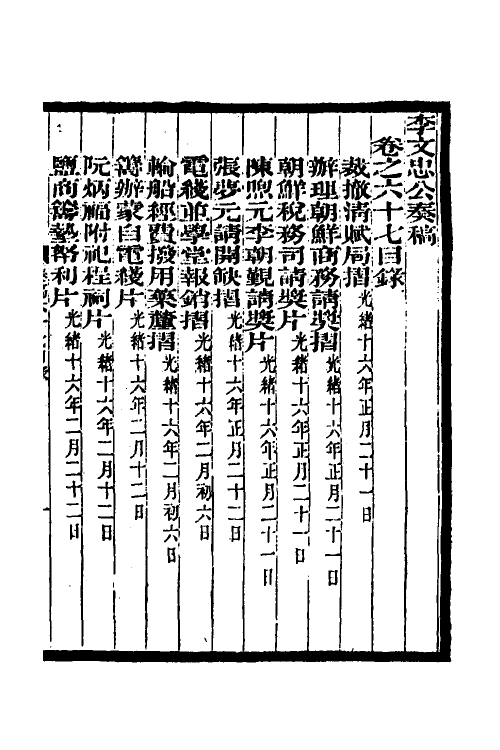 李文忠公奏稿
卷之六十七目錄
裁撤清賦局摺 光緒十六年正月二十一日
辦理朝鮮商務請獎摺 光緒十六年正月二十一日
朝鮮稅務司請獎片 光緒十六年正月二十一日
陳煦元李朝覲請獎片 光緒十六年正月二十一日
張夢元請開缺摺 光緒十六年正月二十二日
電綫並學堂報銷摺 光緒十六年二月初六日
輪船經費撥用藥釐摺 光緒十六年二月初六日
籌辦蒙自電綫片 光緒十六年二月十二日
阮炳福附祀程祠片 光緒十六年二月十二日
鹽商籌墊帑利片 光緒十六年二月二十二日